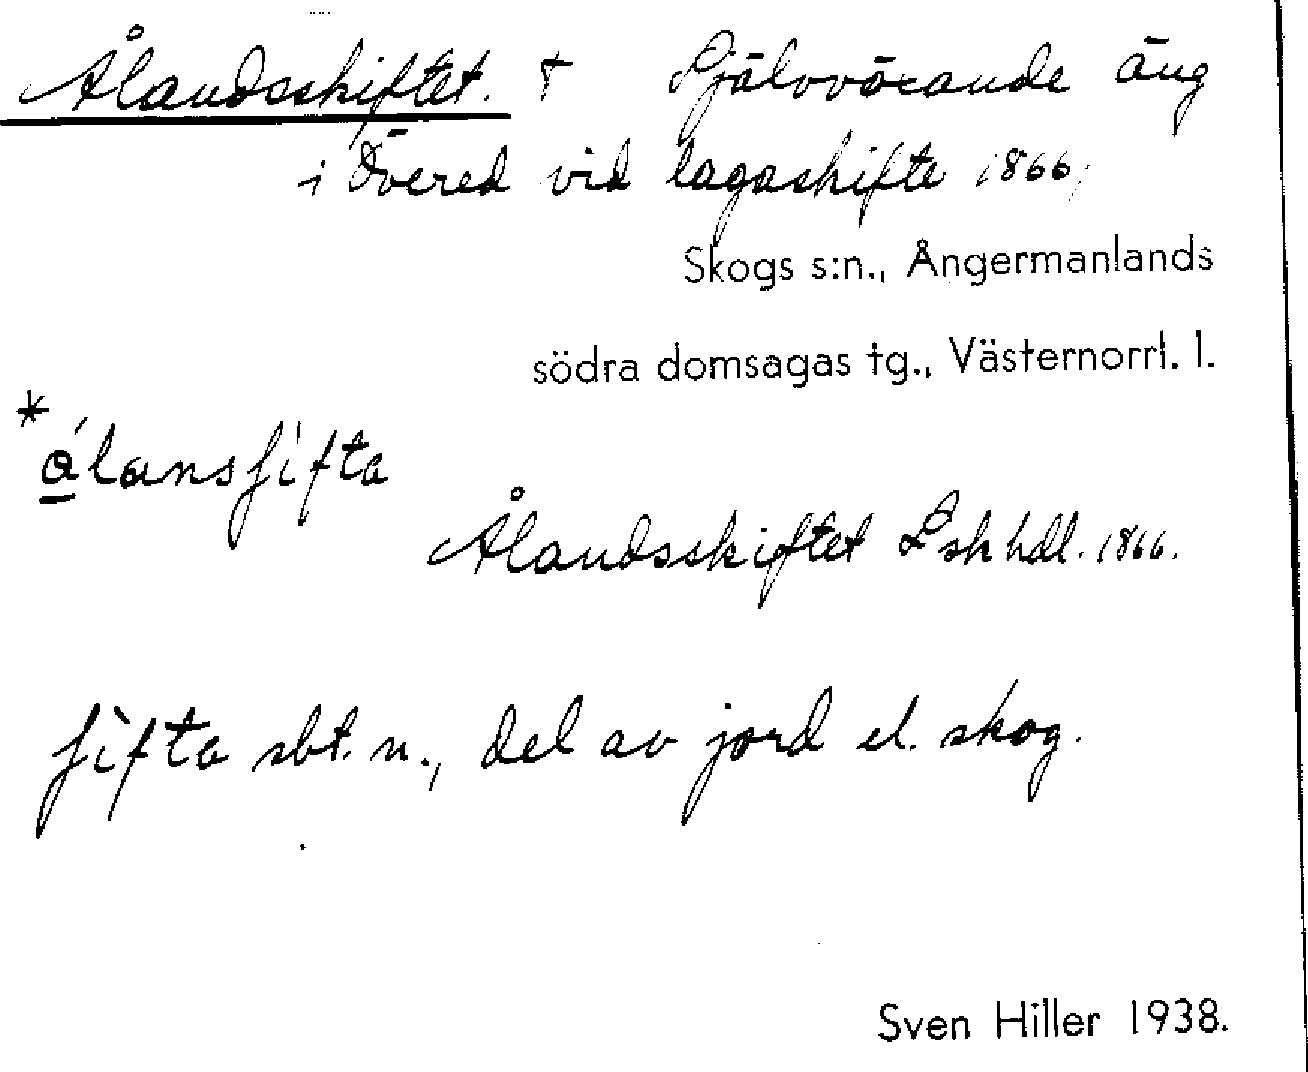 Ålandsskiftet. † Självväxande äng
i Övered vid lagaskifte 1866,
Skogs s:n., Ångermanlands
södra domsagas tg., Västernorrl. l.
*ålansʃifta
Ålandsskiftet Lskhdl. 1866.
ʃifta sbt. n., del av jord el. skog.
Sven Hiller 1938.